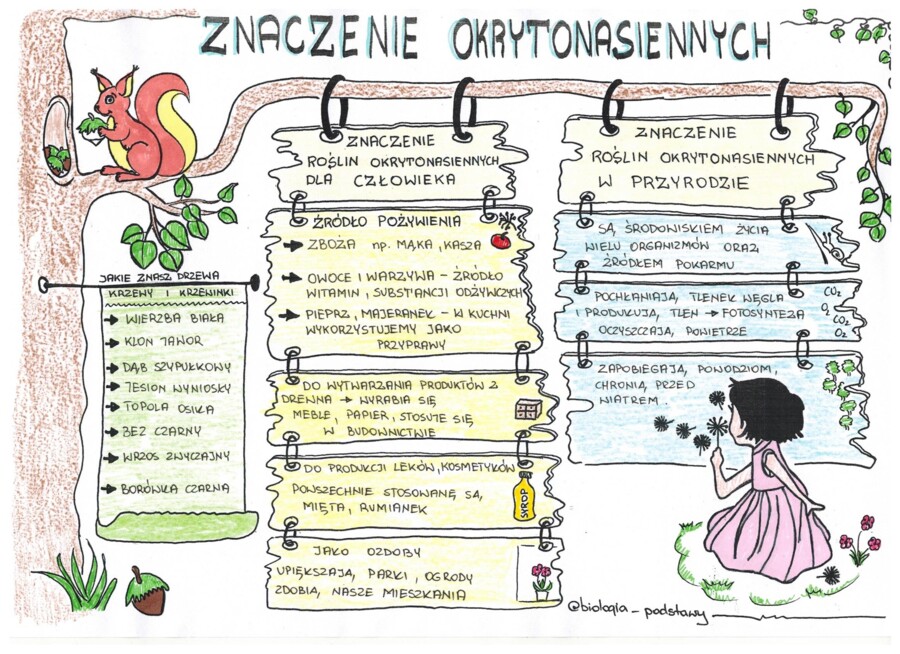 ZNACZENIE OKRYTONASIENNYCH
JAKIE ZNASZ DRZEWA
KRZEWY I KRZEWINKI
→ WIERZBA BIAŁA
→ KLON JAWOR
→ DĄB SZYPUŁKOWY
→ JESION WYNIOSŁY
→ TOPOLA OSIKA
→ BEZ CZARNY
→ WRZOS ZWYCZAJNY
→ BORÓWKA CZARNA
ZNACZENIE
ROŚLIN OKRYTONASIENNYCH
DLA CZŁOWIEKA
ŹRÓDŁO POŻYWIENIA
→ ZBOŻA np. MĄKA, KASZA
→ OWOCE I WARZYWA - ŹRÓDŁO
WITAMIN, SUBSTANCJI ODŻYWCZYCH
→ PIEPRZ, MAJERANEK - W KUCHNI
WYKORZYSTUJEMY JAKO
PRZYPRAWY
DO WYTWARZANIA PRODUKTÓW Z
DREWNA → WYRABIA SIĘ
MEBLE, PAPIER, STOSUJE SIĘ
W BUDOWNICTWIE
DO PRODUKCJI LEKÓW, KOSMETYKÓW
POWSZECHNIE STOSOWANE SĄ,
MIĘTA, RUMIANEK
SYROP
JAKO OZDOBY
UPIĘKSZAJĄ, PARKI, OGRODY
ZDOBIĄ, NASZE MIESZKANIA
ZNACZENIE
ROŚLIN OKRYTONASIENNYCH
W PRZYRODZIE
SĄ, ŚRODOWISKIEM ŻYCIA
WIELU ORGANIZMÓW ORAZ
ŹRÓDŁEM POKARMU
POCHŁANIAJĄ, TLENEK WĘGLA
I PRODUKUJĄ, TLEN → FOTOSYNTEZA
OCZYSZCZAJĄ, POWIETRZE
CO₂
O₂
CO₂
O₂
ZAPOBIEGAJĄ, POWODZIOM,
CHRONIĄ, PRZED
WIATREM.
@biologia_podstawy